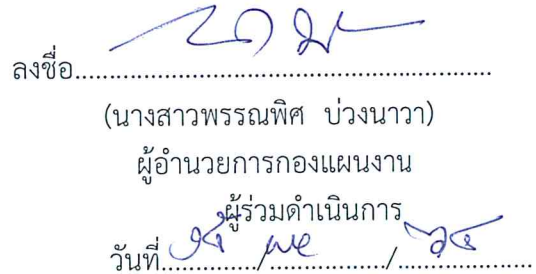 ลงชื่อ..........................................................
(นางสาวพรรณพิศ บ่วงนาวา)
ผู้อำนวยการกองแผนงาน
ผู้ร่วมดำเนินการ
วันที่............../................/...................